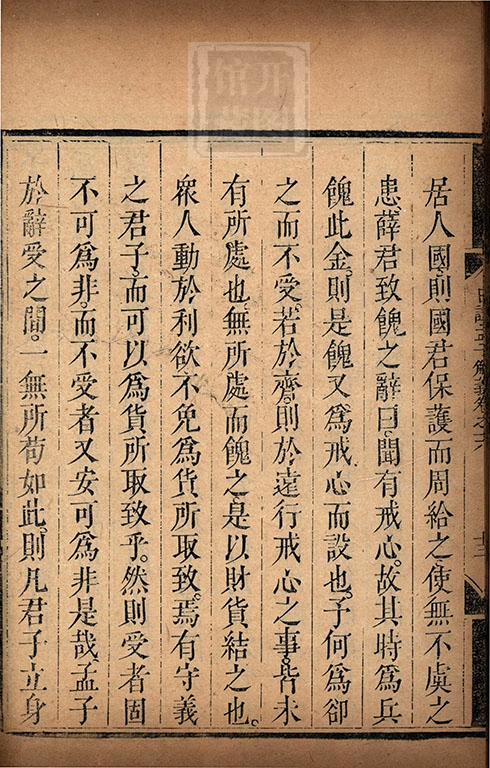 居人國則國君保護而周給之使無不虞之
患薛君致餽之辭曰聞有戒心故其時爲兵
餽此金則是餽又爲戒心而設也予何爲卻
之而不受若於齊則於遠行戒心之事皆未
有所處也無所處而餽之是以財貨結之也
衆人動於利欲不免爲貨所取致焉有守義
之君子而可以爲貨所取致乎然則受者固
不可爲非而不受者又安可爲非是哉孟子
於辭受之間一無所苟如此則凡君子立身